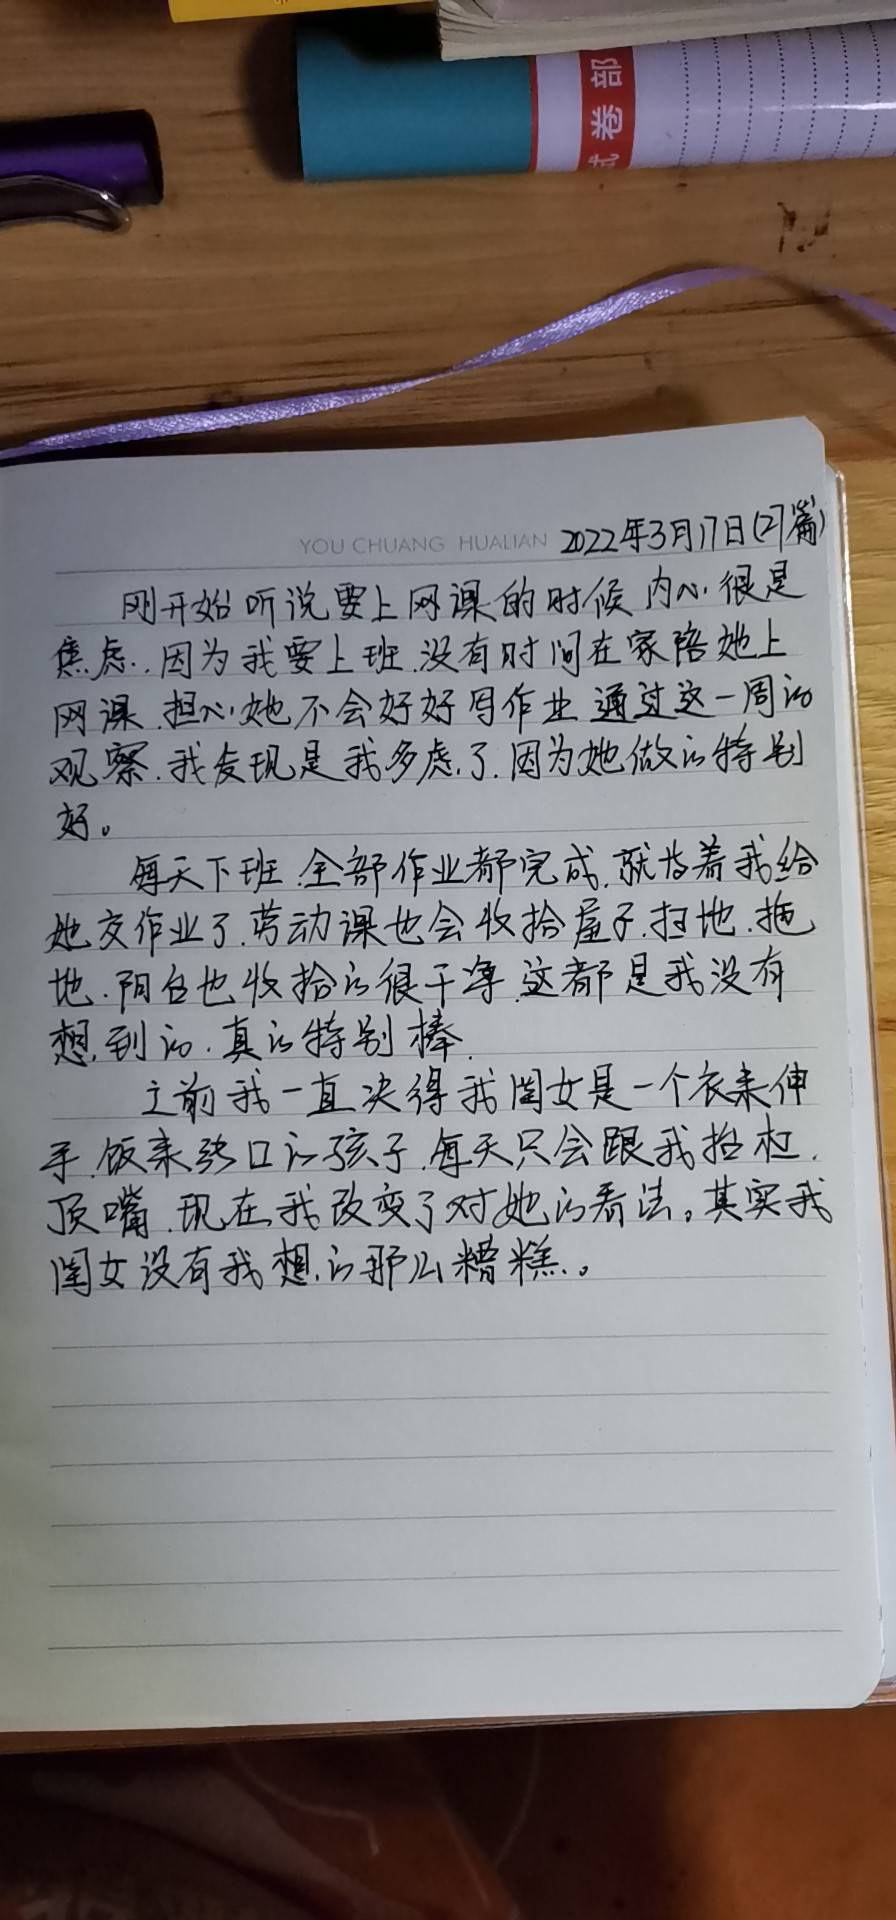 试卷部
YOU CHUANG HUALIAN 2022年3月17日(27篇)
刚开始听说要上网课的时候内心很是
焦虑.因为我要上班.没有时间在家陪她上
网课.担心她不会好好写作业.通过这一周的
观察.我发现是我多虑了.因为她做的特别
好。
每天下班.全部作业都完成.就等着我给
她交作业了.劳动课也会收拾屋子.扫地.拖
地.阳台也收拾的很干净.这都是我没有
想到的.真的特别棒.
之前我一直决得我闺女是一个衣来伸
手.饭来张口的孩子.每天只会跟我抬杠.
顶嘴.现在我改变了对她的看法。其实我
闺女没有我想的那么糟糕.。